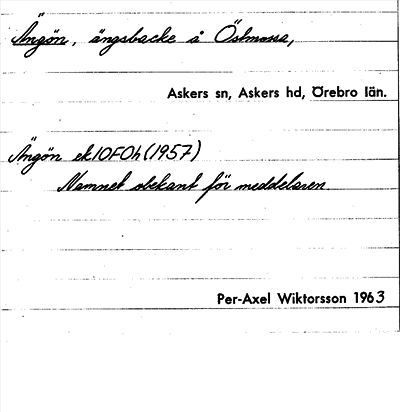 Ängön, ängsbacke å Östmossa,
Askers sn, Askers hd, Örebro län.
Ängön ek10F0h (1957)
Namnet obekant för meddelaren
Per-Axel Wiktorsson 1963